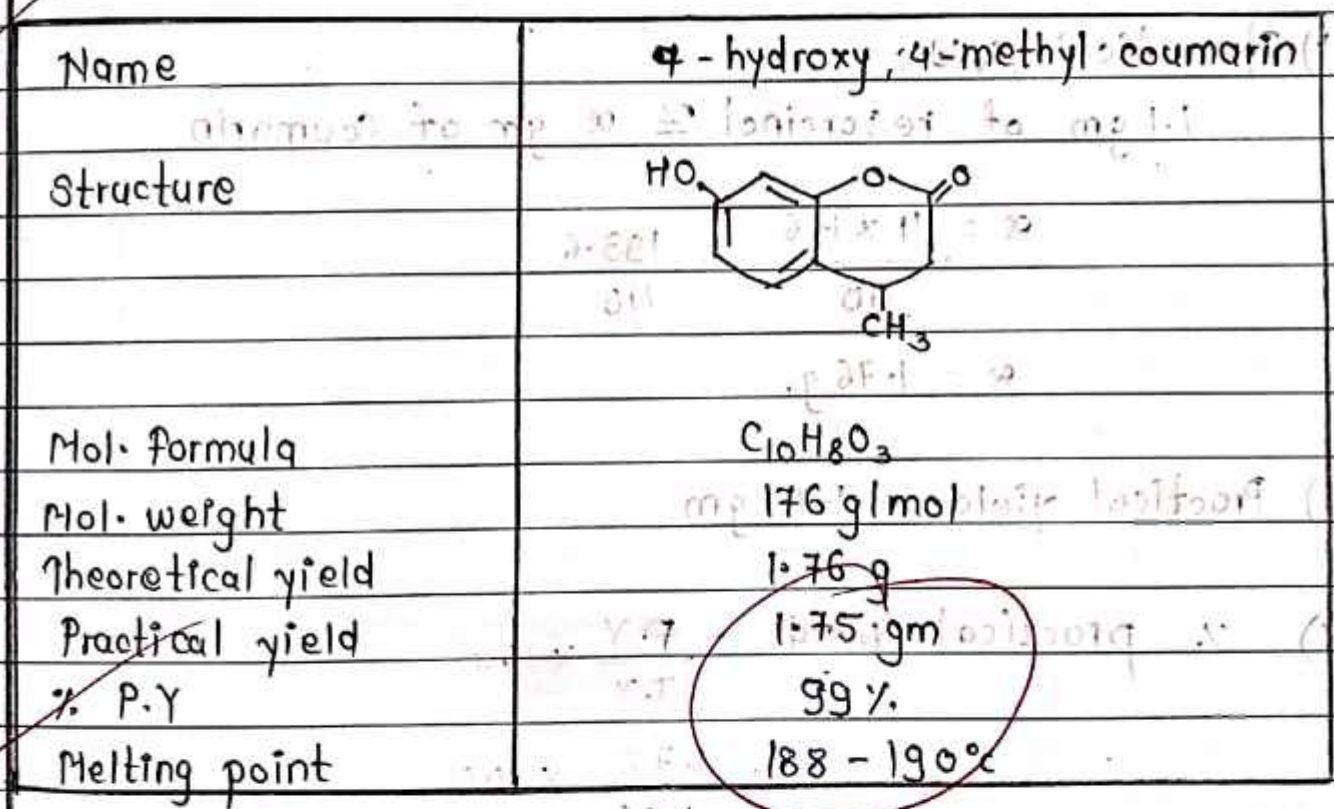 Name 7 - hydroxy, 4-methyl coumarin
Structure
HO O O
CH3
Mol. formula C10H8O3
Mol. weight 176 g/mol
Theoretical yield 1.76 g
Practical yield 1.75 gm
% P.Y 99 %
Melting point 188 - 190°c